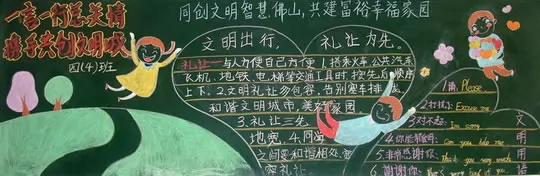 一言一行总关情
携手共创文明城
四(4)班
同创文明智慧佛山,共建富裕幸福家园
文明出行, 礼让为先。
礼让一 与人方便自己方便 1.搭乘火车、公共汽车
飞机、地铁、电梯等交通工具时按先后顺序
上下。2.文明礼让勿包容,告别塞车排
和谐文明城市,美 家园
3.礼让三先
地宽,4.同学
之间要和谐相处,
礼让.
1.请, Please
2.打扰 Excuse me
3.对不起: I'm sorry
4.你能帮我吗: Can you help me
5.非常感谢你: Thank you very much
6.谢谢你:
文
明
用
语